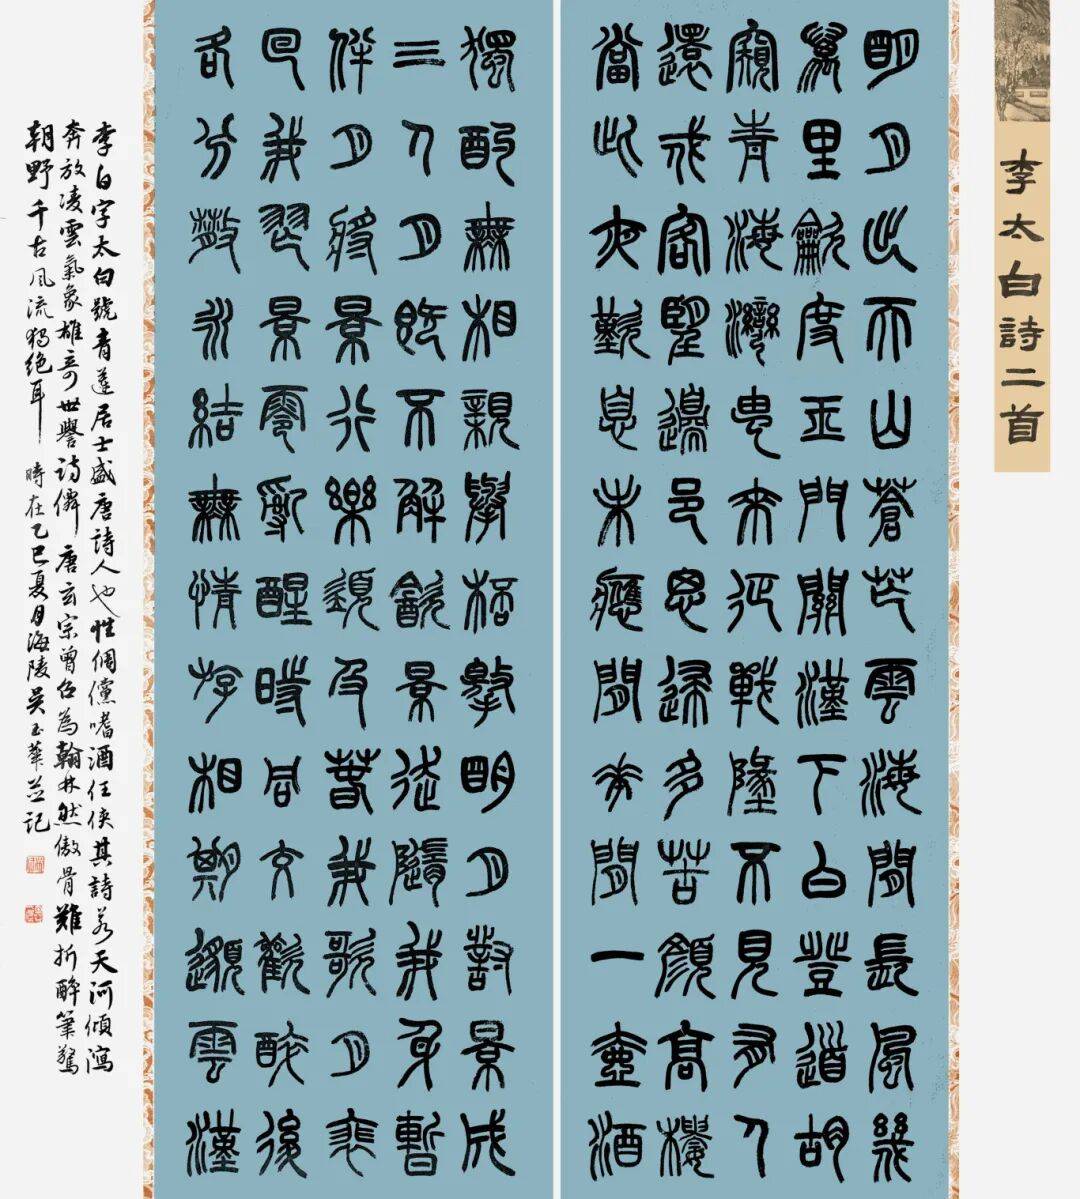 李太白詩二首
明月出天山蒼茫雲海間長風幾
萬里吹度玉門關漢下白登道胡
窺青海灣由來征戰地不見有人
還戍客望邊邑思歸多苦顏高樓
當此夜歎息未應閒花間一壺酒
獨酌無相親舉杯邀明月對景成
三人月既不解飲景徒隨我身暫
伴月將景行樂須及春我歌月裴
回我舞景零亂醒時同交歡醉後
各分散永結無情遊相期邈雲漢
李白字太白號青蓮居士盛唐詩人也性倜儻嗜酒任俠其詩若天河傾瀉
奔放凌雲氣象雄奇世譽詩僊唐玄宗曾召為翰林然傲骨難折醉筆驚
朝野千古風流獨絕耳時在乙巳夏月海陵吳玉華並記